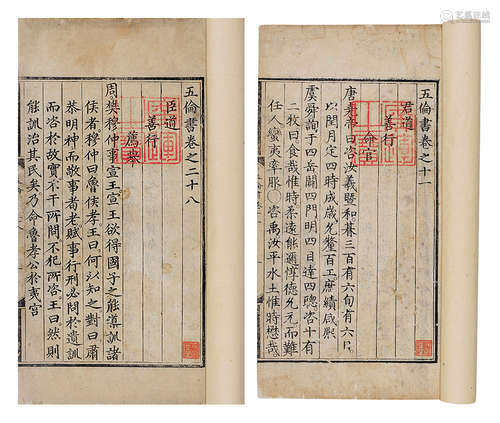 五倫書卷之十一
君道
善行
命官
唐堯帝曰咨汝羲暨和朞三百有六旬有六日
以閏月定四時成歲允釐百工庶績咸熙
虞舜詢于四岳闢四門明四目達四聰咨十有
二牧曰食哉惟時柔遠能邇惇德允元而難
任人蠻夷率服○咨禹汝平水土惟時懋哉
五倫書卷之二十八
臣道
善行
薦舉
周樊穆仲事宣王宣王欲得國子之能導訓諸
侯者穆仲曰魯侯孝王曰何以知之對曰肅
恭明神而敬事耇老賦事行刑必問於遺訓
而咨於故實不干所問不犯所咨王曰然則
能訓治其民矣乃命魯孝公於夷宮